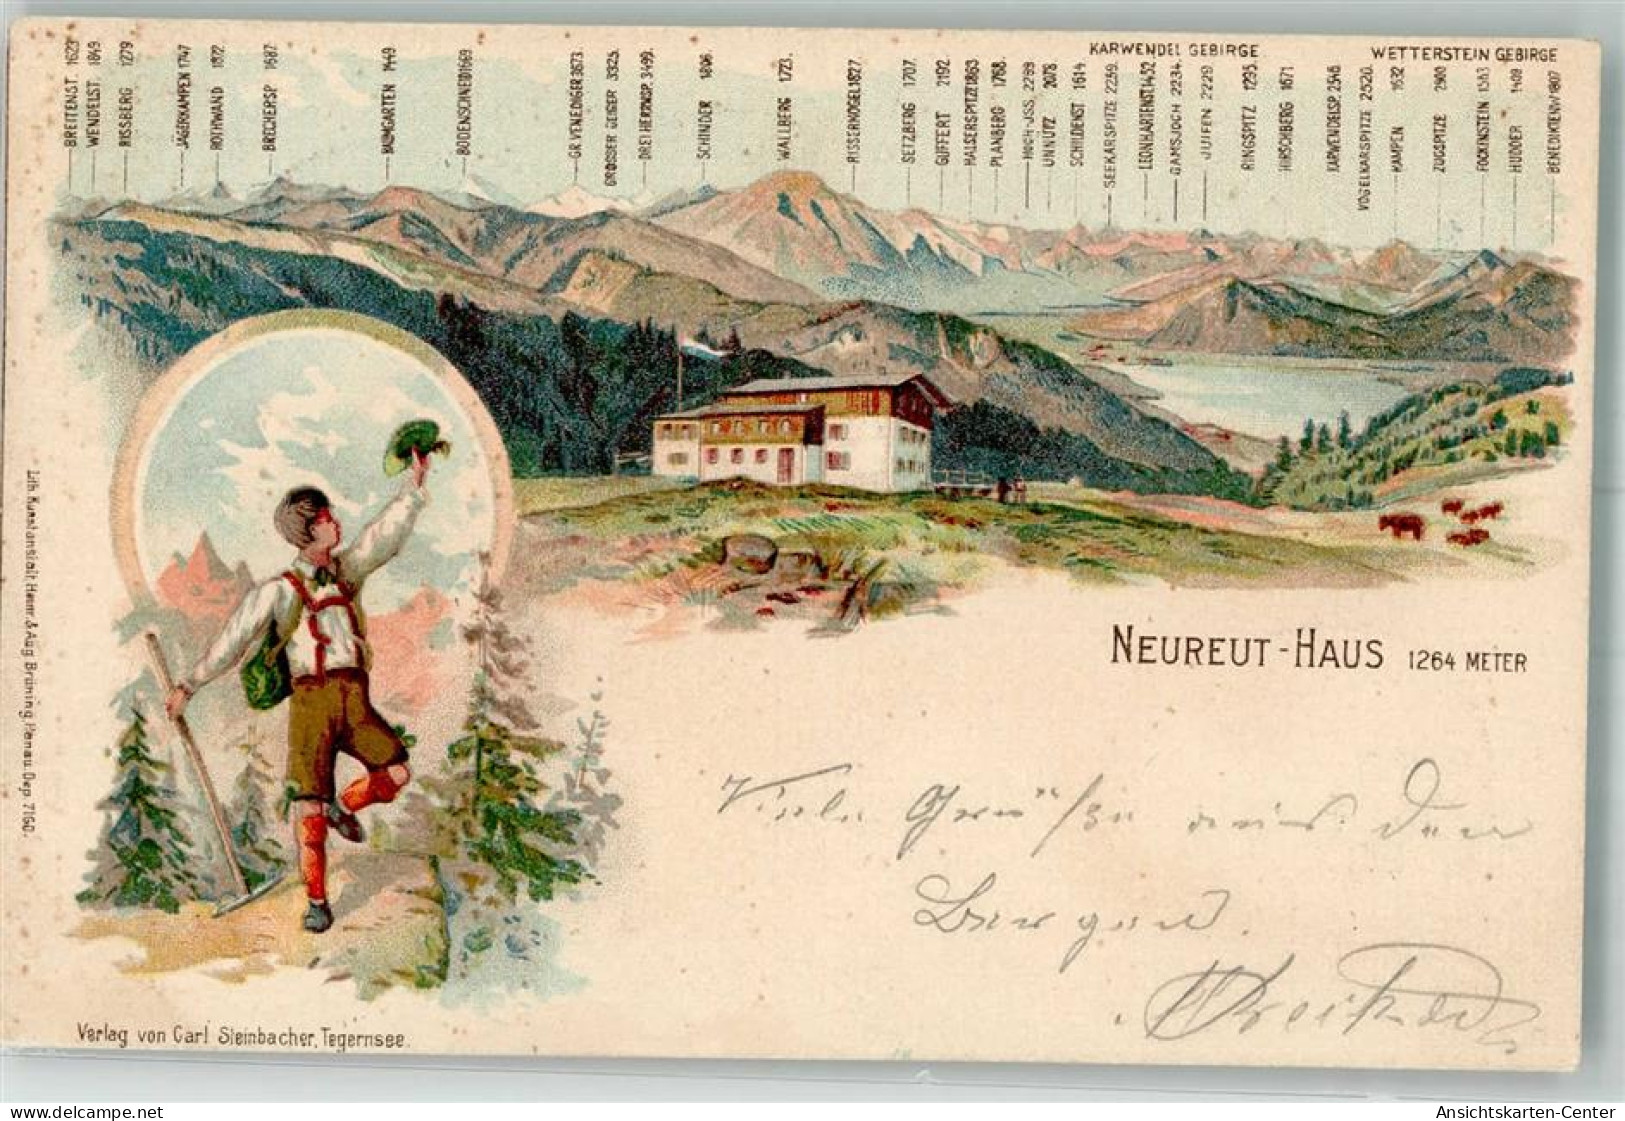 KARWENDEL GEBIRGE
WETTERSTEIN GEBIRGE
BREITENST. 1623
WENDELST. 1849
RISSBERG 1279
JÄGERKAMPEN 1747
ROTHWAND 1872
BRECHERSP 1687
BAUMGARTEN 1449
BODENSCHNEID 1669
GR. VENEDIGER 3673.
GROSSER GEIGER 3325.
DREI HERRNSP. 3499.
SCHINDER 1808.
WALLBERG 1723.
RISSERKOGEL 1827.
SETZBERG 1707.
GUFFERT 2192.
HALSERSPITZE 1863
PLANBERG 1768.
HOCH-JSS. 2299
UNNUTZ 2078.
SCHILDENST 1614
SEEKARSPITZE 2259.
LEONHARTENST. 1452
GAMSJOCH 2234.
JUIFEN 2229
RINGSPITZ 1295.
HIRSCHBERG 1671
KARWENDELSP. 2546.
VOGELKARSPITZE 2520.
KAMPEN 1632
ZUGSPITZE 2960
FOCKNSTEIN 1563
HUDOER 1409
BENEDIKTENW 1807
NEUREUT-HAUS 1264 METER
Viele Grüße aus den
Bergen.
Lith. Kunstanstalt Heinr. & Aug. Brüning, Hanau. Dep. 7160.
Verlag von Carl Steinbacher, Tegernsee.
Ansichtskarten-Center
www.delcampe.net